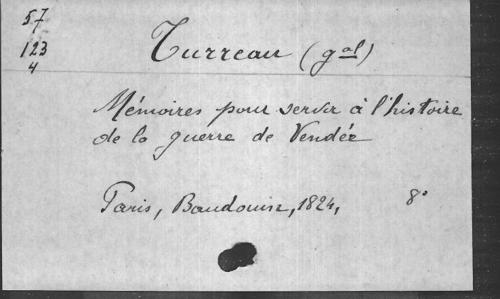 57
123
4
Turreau (gal)
Mémoires pour servir à l'histoire
de la guerre de Vendée
Paris, Baudouin, 1824, 8°